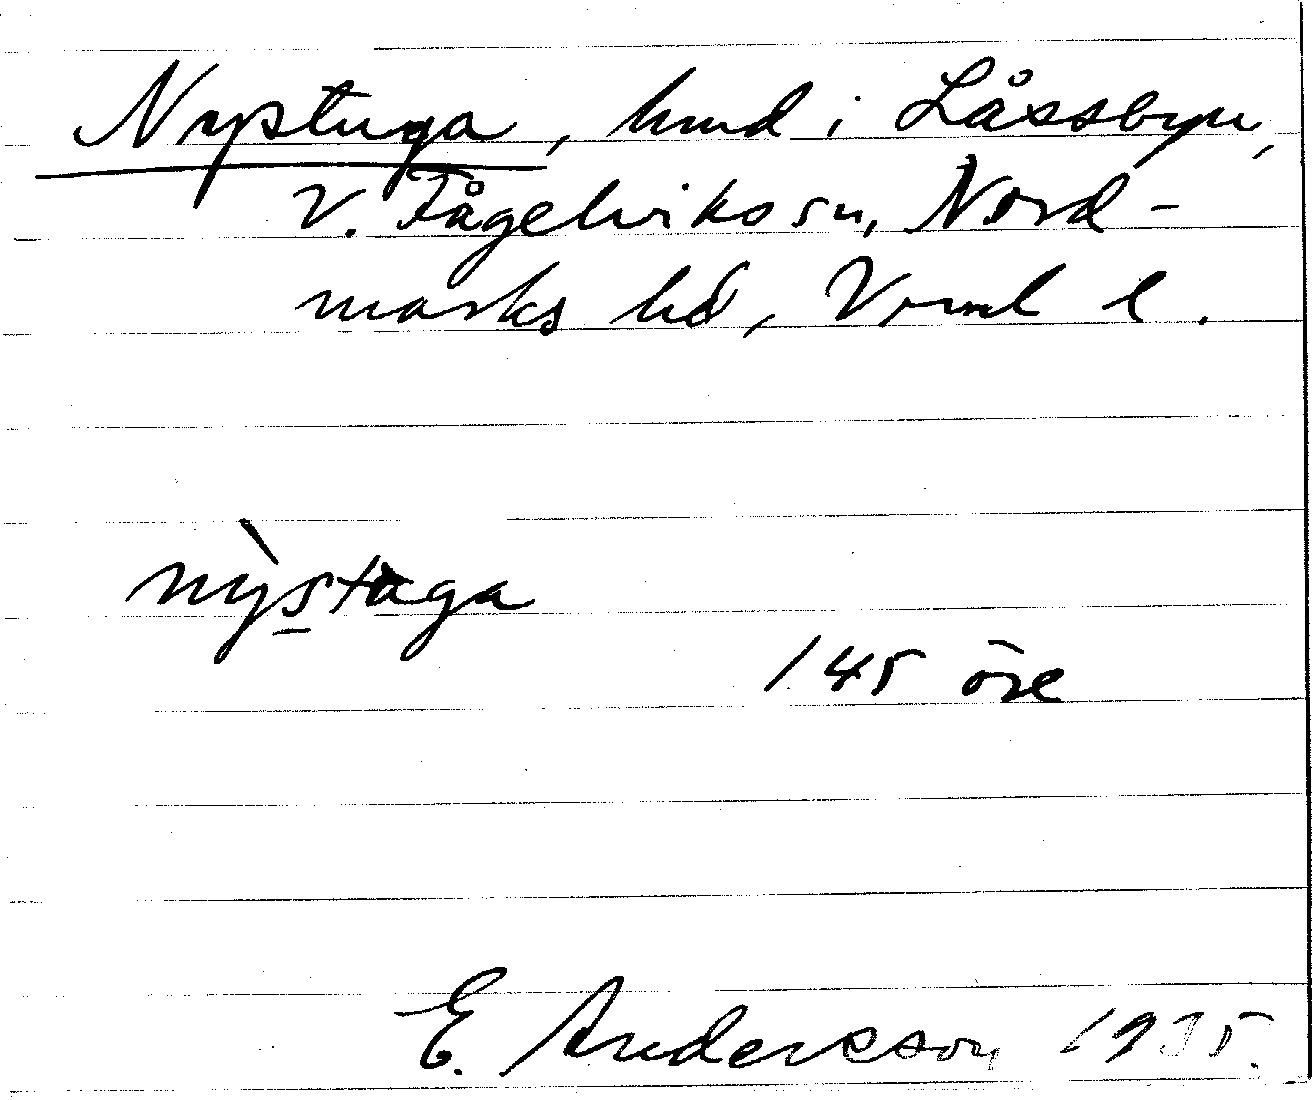 Nystuga, hmd i Låssbyn,
V. Fågelviks sn, Nord-
marks hd, Vrml l.
nỳstuga
145 öre
E. Andersson 1935.